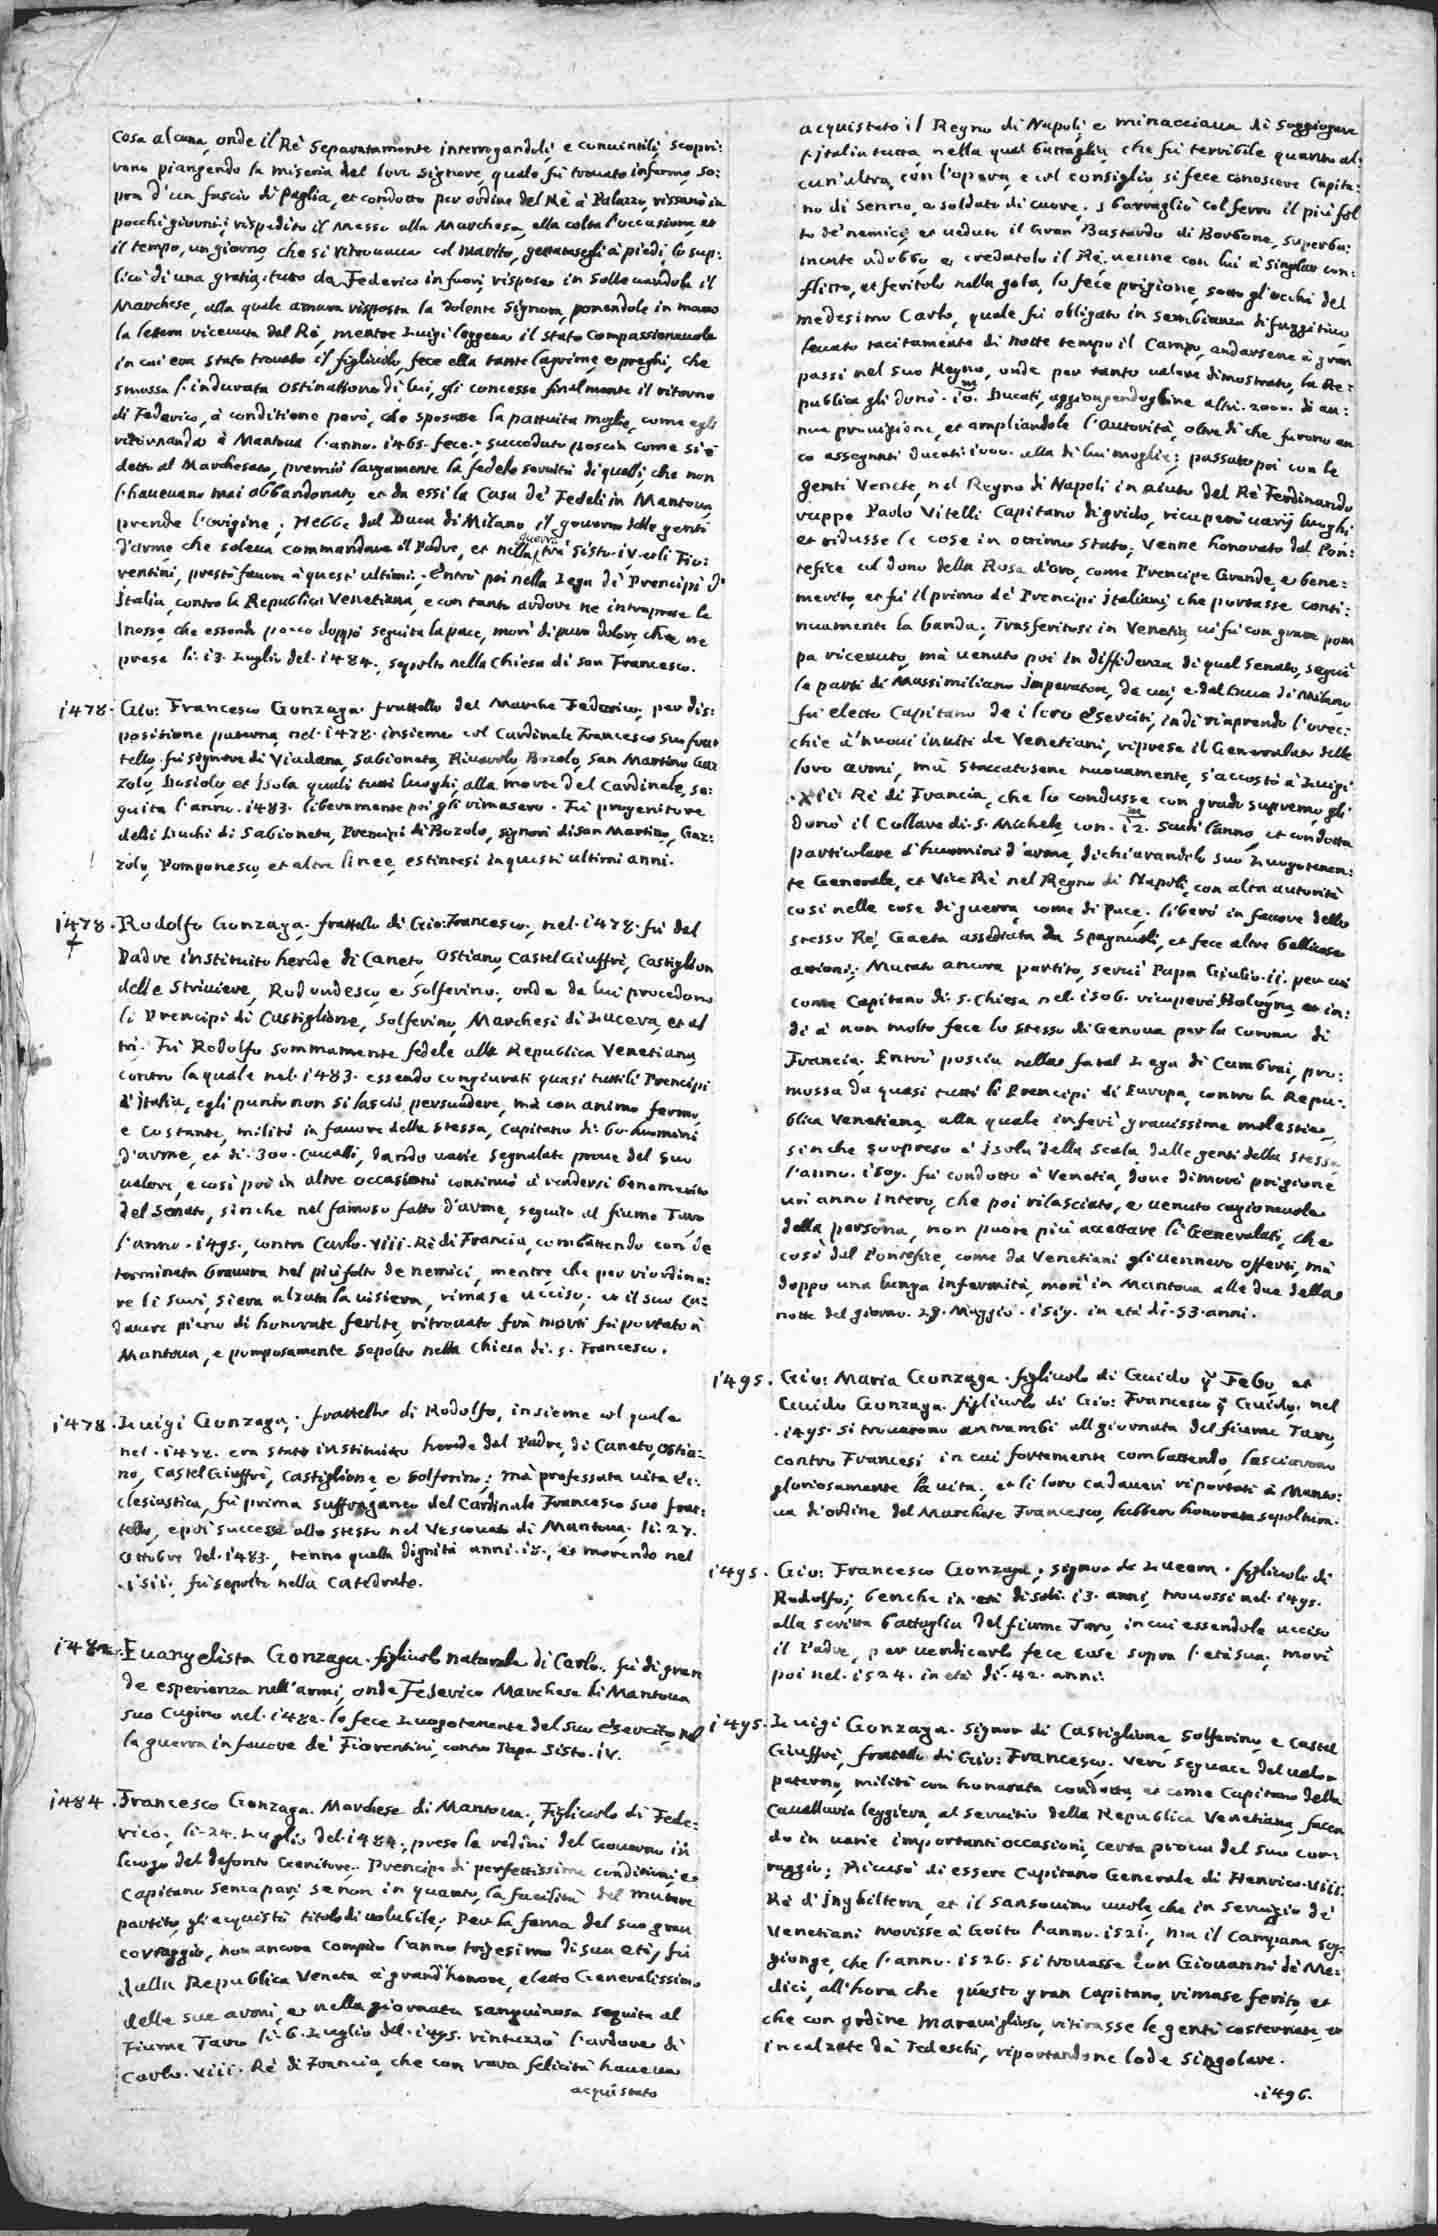 cosa alcuna, onde il Rè Separatamente interrogandoli, e convintili, scopri:
rono piangendo la miseria del loro Signore, quale fù trovato infermo, so:
pra d'un fascio di Paglia, et condotto per ordine del Rè à Palazzo, rissanò in
pochi giorni; rispedito il Messo alla Marchesa, ella colta l'occasione, et
il tempo, un giorno, che si ritrovava col Marito, gettatasegli à piedi, lo sup:
licò di una gratia; tutto da Federico in fuori, rispose in Sollevandola il
Marchese, alla quale amara risposta la dolente Signora, ponendole in mano
la lettera ricevuta dal Rè, mentre Luigi leggeva il stato compassionevole
in cui era stato trovato il figliuolo, fece ella tante lagrime, e preghi, che
smossa l'indurata ostinatione di lui, gli concesse finalmente il ritorno
di Federico, à conditione però, che sposasse la pattuita moglie, come egli
ritornando à Mantova l'anno .1465. fece.; succeduto poscia come si è
detto al Marchesato, premiò largamente la fedele servitù di quelli, che non
l'havevano mai abbandonato, et da essi la Casa de' Fedeli in Mantova,
prende l'origine; Hebbe dal Duca di Milano il governo delle genti
d'arme che soleva commandare il Padre, et nella guerra trà Sisto .iv. et li Fio:
rentini, prestò favore à questi ultimi.- Entrò poi nella Lega de' Prencipi d'
Italia, contro la Republica Venetiana, e con tanto ardore ne intraprese le
mosse, che essendo poco doppò seguita la pace, morì di puro dolore, che ne
prese li .13. Luglio del .1484. sepolto nella Chiesa di san Francesco.
1478. Gio: Francesco Gonzaga. frattello del Marche Federico, per dis:
positione paterna, nel .1478. insieme col Cardinale Francesco suo frat
tello, fù signore di Viadana, Sabioneta, Rivarolo, Bozolo, San Martino, Gaz
zolo, Dosiolo, et Isola quali tutti luoghi, alla morte del Cardinale, se:
guita l'anno .1483. liberamente poi gli rimasero. Fù progenitore
delli Duchi di Sabioneta, Prencipi di Bozolo, signori di san Martino, Gaz:
zolo, Pomponesco, et altre linee, estintesi in questi ultimi anni.
1478. Rodolfo Gonzaga. frattello di Gio: Francesco, nel .1478. fù dal
Padre instituito herede di Caneto, Ostiano, Castel Giuffrè, Castiglion
delle Striviere, Rodondesco, e Solferino; onde da lui procedono
li Prencipi di Castiglione, Solferino, Marchesi di Lucera, et al
tri. Fù Rodolfo sommamente fedele alla Republica Venetiana,
contro la quale nel .1483. essendo congiurati quasi tutti li Prencipi
d'Italia, egli punto non si lasciò persuadere, mà con animo fermo,
e costante, militò in favore della stessa, Capitano di .60. huomini
d'arme, et di .300. Cavalli, dando varie segnalate prove del suo
valore, e così poi in altre occasioni continuò à rendersi benemerito
del Senato, sin che nel famoso fatto d'arme, seguito al fiume Taro
l'anno .1495., contro Carlo .viii. Rè di Francia, combattendo con de
terminata bravura nel più folto de nemici, mentre che per riordina:
re li suoi, s'era alzata la visiera, rimase ucciso; et il suo Ca:
davere pieno di honorate ferite, ritrovato frà morti fù portato à
Mantova, e pomposamente sepolto nella Chiesa di .s. Francesco.
1478. Luigi Gonzaga; frattello di Rodolfo, insieme col quale
nel .1478. era stato instituito herede dal Padre, di Caneto, Ostia:
no, Castel Giuffrè, Castiglione, e Solferino; mà professata vita Ec:
clesiastica, fù prima suffraganeo del Cardinale Francesco suo frat:
tello, e poi successe allo stesso nel Vescovato di Mantova; li .27.
Ottobre del .1483., tenne quella dignità anni .18., et morendo nel
.1511. fù sepolto nella Catedrale.
1482. Evangelista Gonzaga. figliuolo naturale di Carlo., fù di gran
de esperienza nell'armi, onde Federico Marchese di Mantova
suo Cugino nel .1482. lo fece Luogotenente del suo esercito, nel
la guerra in favore de' Fiorentini, contro Papa Sisto .iv.
1484. Francesco Gonzaga. Marchese di Mantova; Figliuolo di Fede:
rico; li .24. Luglio del .1484., prese le redini del Governo in
luogo del defonto Genitore. Prencipe di perfettissime conditioni, e
Capitano senza pari, se non in quanto, la facilità del mutare
partito, gli acquistò titolo di volubile; Per la fama del suo gran
corraggio, non ancora compito l'anno trigesimo di sua età, fù
dalla Republica Veneta à grand'honore, eletto Generalissimo
delle sue armi, et nella giornata sanguinosa seguita al
Fiume Taro li .6. Luglio del .1495. rintuzzò l'ardore di
Carlo .viii. Rè di Francia, che con rara felicità haveva
acquistato
acquistato il Regno di Napoli, e minacciava di Soggiogare
l'italia tutta, nella qual battaglia, che fù terribile quanto al:
cun'altra, con l'opera, e col consiglio, si fece conoscere Capita:
no di Senno, e soldato di cuore; sbarragliò col ferro il più fol
to de' nemici, et veduto il Gran Bastardo di Borbone, superba:
mente adobbò, e credutolo il Rè, venne con lui à singolar con:
flitto, et feritolo nella gola, lo fece prigione, sotto gl'occhi del
medesimo Carlo, quale fù obligato in sembianza di fuggitivo,
levato tacitamente di notte tempo il Campo, andarsene à gran
passi nel suo Regno, onde per tanto valore dimostrato, la Re:
publica gli donò .10.m Ducati, aggiongendogline altri .2000. di an:
nua provigione, et ampliandole l'Autorità, oltre di che furono an
co assegnati Ducati .1000. alla di lui moglie; passato poi con le
genti Venete, nel Regno di Napoli in aiuto del Rè Ferdinando
ruppe Paolo Vitelli Capitano di grido, ricuperò varij luoghi,
et ridusse le cose in ottimo stato; Venne honorato dal Pon:
tefice col dono della Rosa d'oro, come Prencipe Grande, e bene:
merito, et fù il primo de' Prencipi italiani, che portasse conti:
nuamente la banda; Trasferitosi in Venetia, vi fù con grave pom
pa ricevuto, mà venuto poi in diffidenza di quel Senato, seguì
le parti di Massimiliano Imperatore, da cui, e dal Duca di Milano
fù eletto Capitano de i loro Eserciti, indi riaprendo l'orec:
chie à nuovi inviti de Venetiani, riprese il Generalato delle
loro armi, mà staccatosene nuovamente, s'accostò à Luigi
.Xii. Rè di Francia, che lo condusse con grado supremo, gli
donò il Collare di .S. Michele con .12.m Scudi l'anno, et condotta
particolare d'huomini d'arme, dichiarandolo suo Luogotenen:
te Generale, et Vice Rè nel Regno di Napoli, con alta autorità
così nelle cose di guerra, come di Pace; liberò in favore dello
stesso Rè, Gaeta assediata da Spagnuoli, et fece altre bellicose
attioni; Mutato ancora partito, servì Papa Giulio .ii. per cui
come Capitano di .S. Chiesa nel .1506. ricuperò Bologna, et in:
di à non molto fece lo stesso di Genova per la Corona di
Francia. Entrò poscia nella fatal Lega di Cambrai, pro:
mossa da quasi tutti li Prencipi di Europa, contro la Repu:
blica Venetiana, alla quale inferì gravissime molestie,
sin che sorpreso à Isola della Scala, dalle genti della stessa
l'anno .1509. fù condotto à Venetia, dove dimorò prigione
un anno intero, che poi rilasciato, e venuto cagionevole
della persona, non puote più accettare li Generalati, che
così dal Pontefice, come da Venetiani gli vennero offerti, mà
doppo una lunga infermità, morì in Mantova alle due della
notte del giorno .29. Maggio .1519. in età di .53. anni.
1495. Gio: Maria Gonzaga. figliuolo di Guido q Febo, et
Guido Gonzaga. figliuolo di Gio: Francesco q Guido, nel
.1495. si trovarono entrambi alla giornata del fiume Taro,
contro Francesi in cui fortemente combattendo, lasciarono
gloriosamente la vita; et li loro cadaveri riportati à Manto:
va d'ordine del Marchese Francesco, hebbero honorata sepoltura.
1495. Gio: Francesco Gonzaga; signor de Lucera. figliuolo di
Rodolfo; benche in età di soli .13. anni, trovossi nel .1495.
alla scritta battaglia del fiume Taro, in cui essendole ucciso
il Padre, per vendicarlo fece cose sopra l'età sua; morì
poi nel .1524. in età di .42. anni.
1495. Luigi Gonzaga. Signor di Castiglione, Solferino, e Castel
Giuffrè, frattello di Gio: Francesco. vero seguace del valor
paterno, militò con honorata condotta, et come Capitano della
Cavallaria leggiera, al servitio della Republica Venetiana, facen
do in varie importanti occasioni, certa prova del suo cor:
raggio; Ricusò di essere Capitano Generale di Henrico .viii.
Rè d'Inghilterra, et il Sansovino vuole, che in servigio de'
Venetiani morisse à Goito l'anno .1521., ma il Campana sog:
gionge, che l'anno .1526. si trovasse con Giovanni de Me:
dici, all'hora che questo gran Capitano, rimase ferito, et
che con ordine maraviglioso, ritirasse le genti costernate, et
incalzate da Tedeschi, riportandone lode singolare.
.1496.